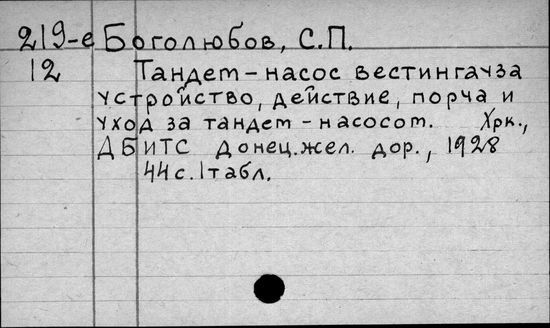 219-е Боголюбов, С.П.
12 Тандем-насос вестингауза
устройство, действие, порча и
уход за тандем-насосом. Хрк.,
ДБИТС Донец.жел. дор., 1928
44с.1табл.